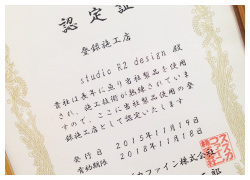 認定証
登録施工店
studio R2 design 殿
貴社は長年に亘り当社製品を使用
され、施工技術が熟練されていま
すので、ここに当社製品使用の登
録施工店として認定いたします
発行日 2015年11月19日
有効期限 2018年11月18日
ファイン株式会社